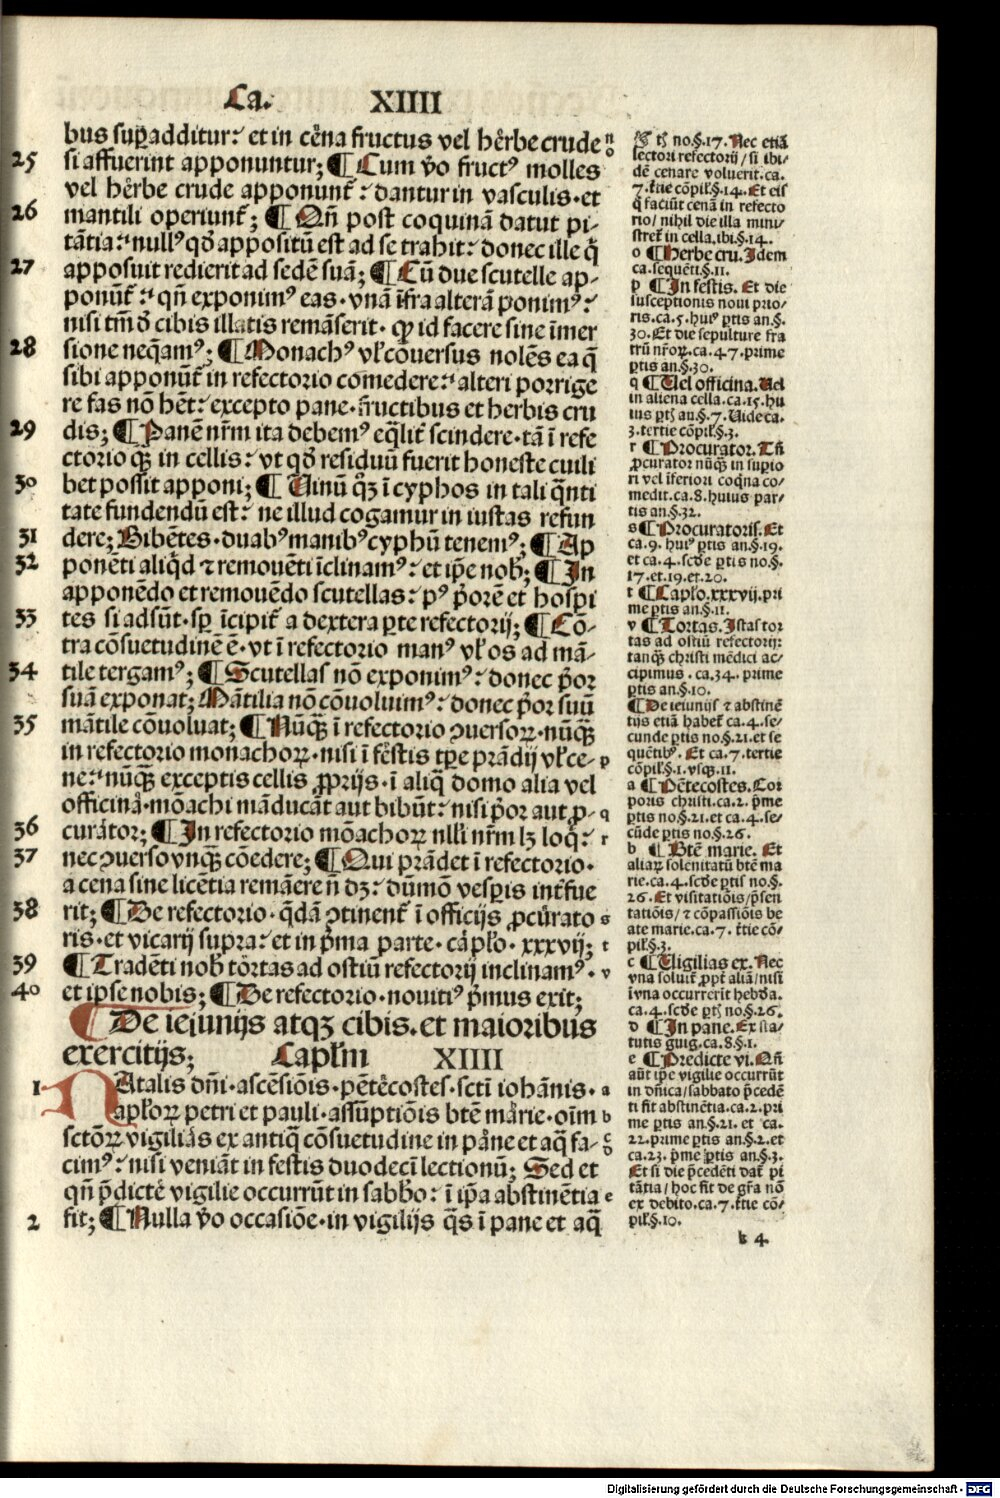 Ca. XIIII
bus suꝑadditur: et in cēna fructus vel hērbe crude n
25 si affuerint apponuntur; ¶ Cum v̄o fructꝰ molles o
vel hērbe crude apponunt̄: dantur in vasculis · et
26 mantili operiunt̄; ¶ Qn̄ post coquinā datut pi-
tātia: nullꝰ qd̄ appositū est ad se trahit: donec ille q̄
27 apposuit redierit ad sedē suā; ¶ Cū due scutelle ap-
ponūt̄: qn̄ exponimꝰ eas · vnā īfra alterā ponimꝰ:
nisi tm̄ d̄ cibis illatis remāserit · qꝛ id facere sine īmer
28 sione neq̄amꝰ; ¶ Monachꝰ vl̓ cōuersus nolēs ea q̄
sibi apponūt̄ in refectorio comedere: alteri porrige
re fas nō hēt: excepto pane · fructibus et herbis cru
29 dis; ¶ Panē nr̄m ita debemꝰ eq̄lit̄ scindere · tā ī refe
ctorio qꝫ in cellis: vt qd̄ residuū fuerit honeste cuili
30 bet possit apponi; ¶ Uinū qꝫ ī cyphos in tali q̄nti
tate fundendū est: ne illud cogamur in iustas refun
31 dere; Bibētes · duabꝰ manibꝰ cyphū tenemꝰ; ¶ Ap
32 ponēti aliq̄d ⁊ remouēti īclinamꝰ: et ip̄e nob̄; ¶ In
apponēdo et remouēdo scutellas: pꝰ p̄orē et hospi
33 tes si adsūt · sꝑ īcipit̄ a dextera ꝑte refectorij; ¶ Cō-
tra cōsuetudinē ē · vt ī refectorio manꝰ vl̓ os ad mā-
34 tile tergamꝰ; ¶ Scutellas nō exponimꝰ: donec p̄or
suā exponat; Mātilia nō cōuoluimꝰ: donec p̄or suū
35 mātile cōuoluat; ¶ Nūqꝫ ī refectorio ꝯuersoꝝ · nūqꝫ
in refectorio monachoꝝ · nisi ī fēstis tꝑe prādij vl̓ ce- p
ne: nūqꝫ exceptis cellis ꝓprijs · ī aliq̄ domo alia vel
officinā · mōachi māducāt aut bibūt: nisi p̄or aut ꝓ- q
36 curātor; ¶ In refectorio mōachoꝝ nlli nr̄m lꝫ loq̄: r
37 nec ꝯuerso vnqꝫ cōedere; ¶ Qui prādet ī refectorio ·
a cena sine licētia remāere n̄ dꝫ: dūmō vesꝑis int̄fue
38 rit; ¶ De refectorio · q̄dā ꝯtinent̄ ī officijs ꝓcūrato s
ris · et vicarij supra: et in p̄ma parte · cāpl̓o · xxxvij; t
39 ¶ Tradēti nob̄ tōrtas ad ostiū refectorij inclinamꝰ · v
40 et ipse nobis; ¶ De refectorio · nouitiꝰ p̄mus exit;
¶ De ieiunijs atqꝫ cibis. et maioribus
exercitijs; Capl̓m XIIII
1 NAtalis dn̄i · ascēsiōis · pētēcostes · sctī iohānis · a
apl̓oꝝ petri et pauli · assūptiōis btē mārie · oīm b
sctōꝝ vigiliās ex antiq̄ cōsuetudine in pāne et aq̄ fa- c
cimꝰ: nisi veniāt in festis duodecī lectionū; Sed et d
qn̄ p̄dictē vigilie occurrūt in sabb̄o: ī ip̄a abstinētia e
2 fit; ¶ Nulla v̄o occasiōe · in vigilijs q̄s ī pane et aq̄
tꝭ no. §. 17. Nec etiā
lectori refectorij / si ibi-
dē cenare voluerit. ca.
7. t̄tie cōpil̓. §. 14. Et eis
q̄ faciūt cenā in refecto
rio / nihil die illa mini-
stret̄ in cella. ibi. §. 14.
o ¶ Herbe cru. Idem
ca. sequēti. §. 11.
p ¶ In festis. Et die
susceptionis noui prio-
ris. ca. 5. huiꝰ ꝑtis an. §.
30. Et die sepulture fra
trū nr̄oꝝ. ca. 47. prime
ꝑtis an. §. 30.
q ¶ Uel officina. Uel
in aliena cella. ca. 15. hu
ius ꝑtꝭ an. §. 7. Uide ca.
3. tertie cōpil̓. §. 3.
r ¶ Procurator. Tn̄
ꝓcurator nūqꝫ in supio
ri vel īferiori coq̄na co-
medit. ca. 8. huius par-
tis an. §. 32.
s ¶ Procuratoris. Et
ca. 9. huiꝰ ꝑtis an. §. 19.
et ca. 4. scd̄e ꝑtis no. §.
17. et. 19. et. 20.
t ¶ Capl̓o. xxxvij. pri
me ꝑtis an. §. 11.
v ¶ Tortas. Istas tor
tas ad ostiū refectorij:
tanqꝫ christi mēdici ac-
cipimus. ca. 34. prime
ꝑtis an. §. 10.
¶ De ieiunijs ⁊ abstinē
tijs etiā habet̄ ca. 4. se-
cunde ꝑtis no. §. 21. et se
quētibꝰ. Et ca. 7. tertie
cōpil̓. §. 1. vsqꝫ. 11.
a ¶ Pētecostes. Cor
poris christi. ca. 2. p̄me
ꝑtis no. §. 21. et ca. 4. se-
cūde ꝑtis no. §. 26.
b ¶ Btē marie. Et
aliaꝝ solenitatū btē ma
rie. ca. 4. scd̄e ꝑtis no. §.
26. Et visitatiōis / p̄sen
tatiōis / ⁊ cōpassiōis be
ate marie. ca. 7. t̄tie cō-
pil̓. §. 3.
c ¶ Uigilias ex. Nec
vna soluit̄ ꝓpt̄ aliā / nisi
ī vna occurrerit hebd̄a.
ca. 4. scd̄e ꝑtꝭ no. §. 26.
d ¶ In pane. Ex sta-
tutis guig. ca. 8. §. 1.
e ¶ Predicte vi. Qn̄
aūt ip̄e vigilie occurrūt
in dn̄ica / sabbato p̄cedē
ti fit abstinētia. ca. 2. pri
me ꝑtis an. §. 21. et ca.
22. prime ꝑtis an. §. 2. et
ca. 23. p̄me ꝑtis an. §. 3.
Et si die p̄cedēti dat̄ pi
tātia / hoc fit de gr̄a nō
ex debito. ca. 7. t̄tie cō-
pil̓. §. 10.
k 4
Digitalisierung gefördert durch die Deutsche Forschungsgemeinschaft - DFG